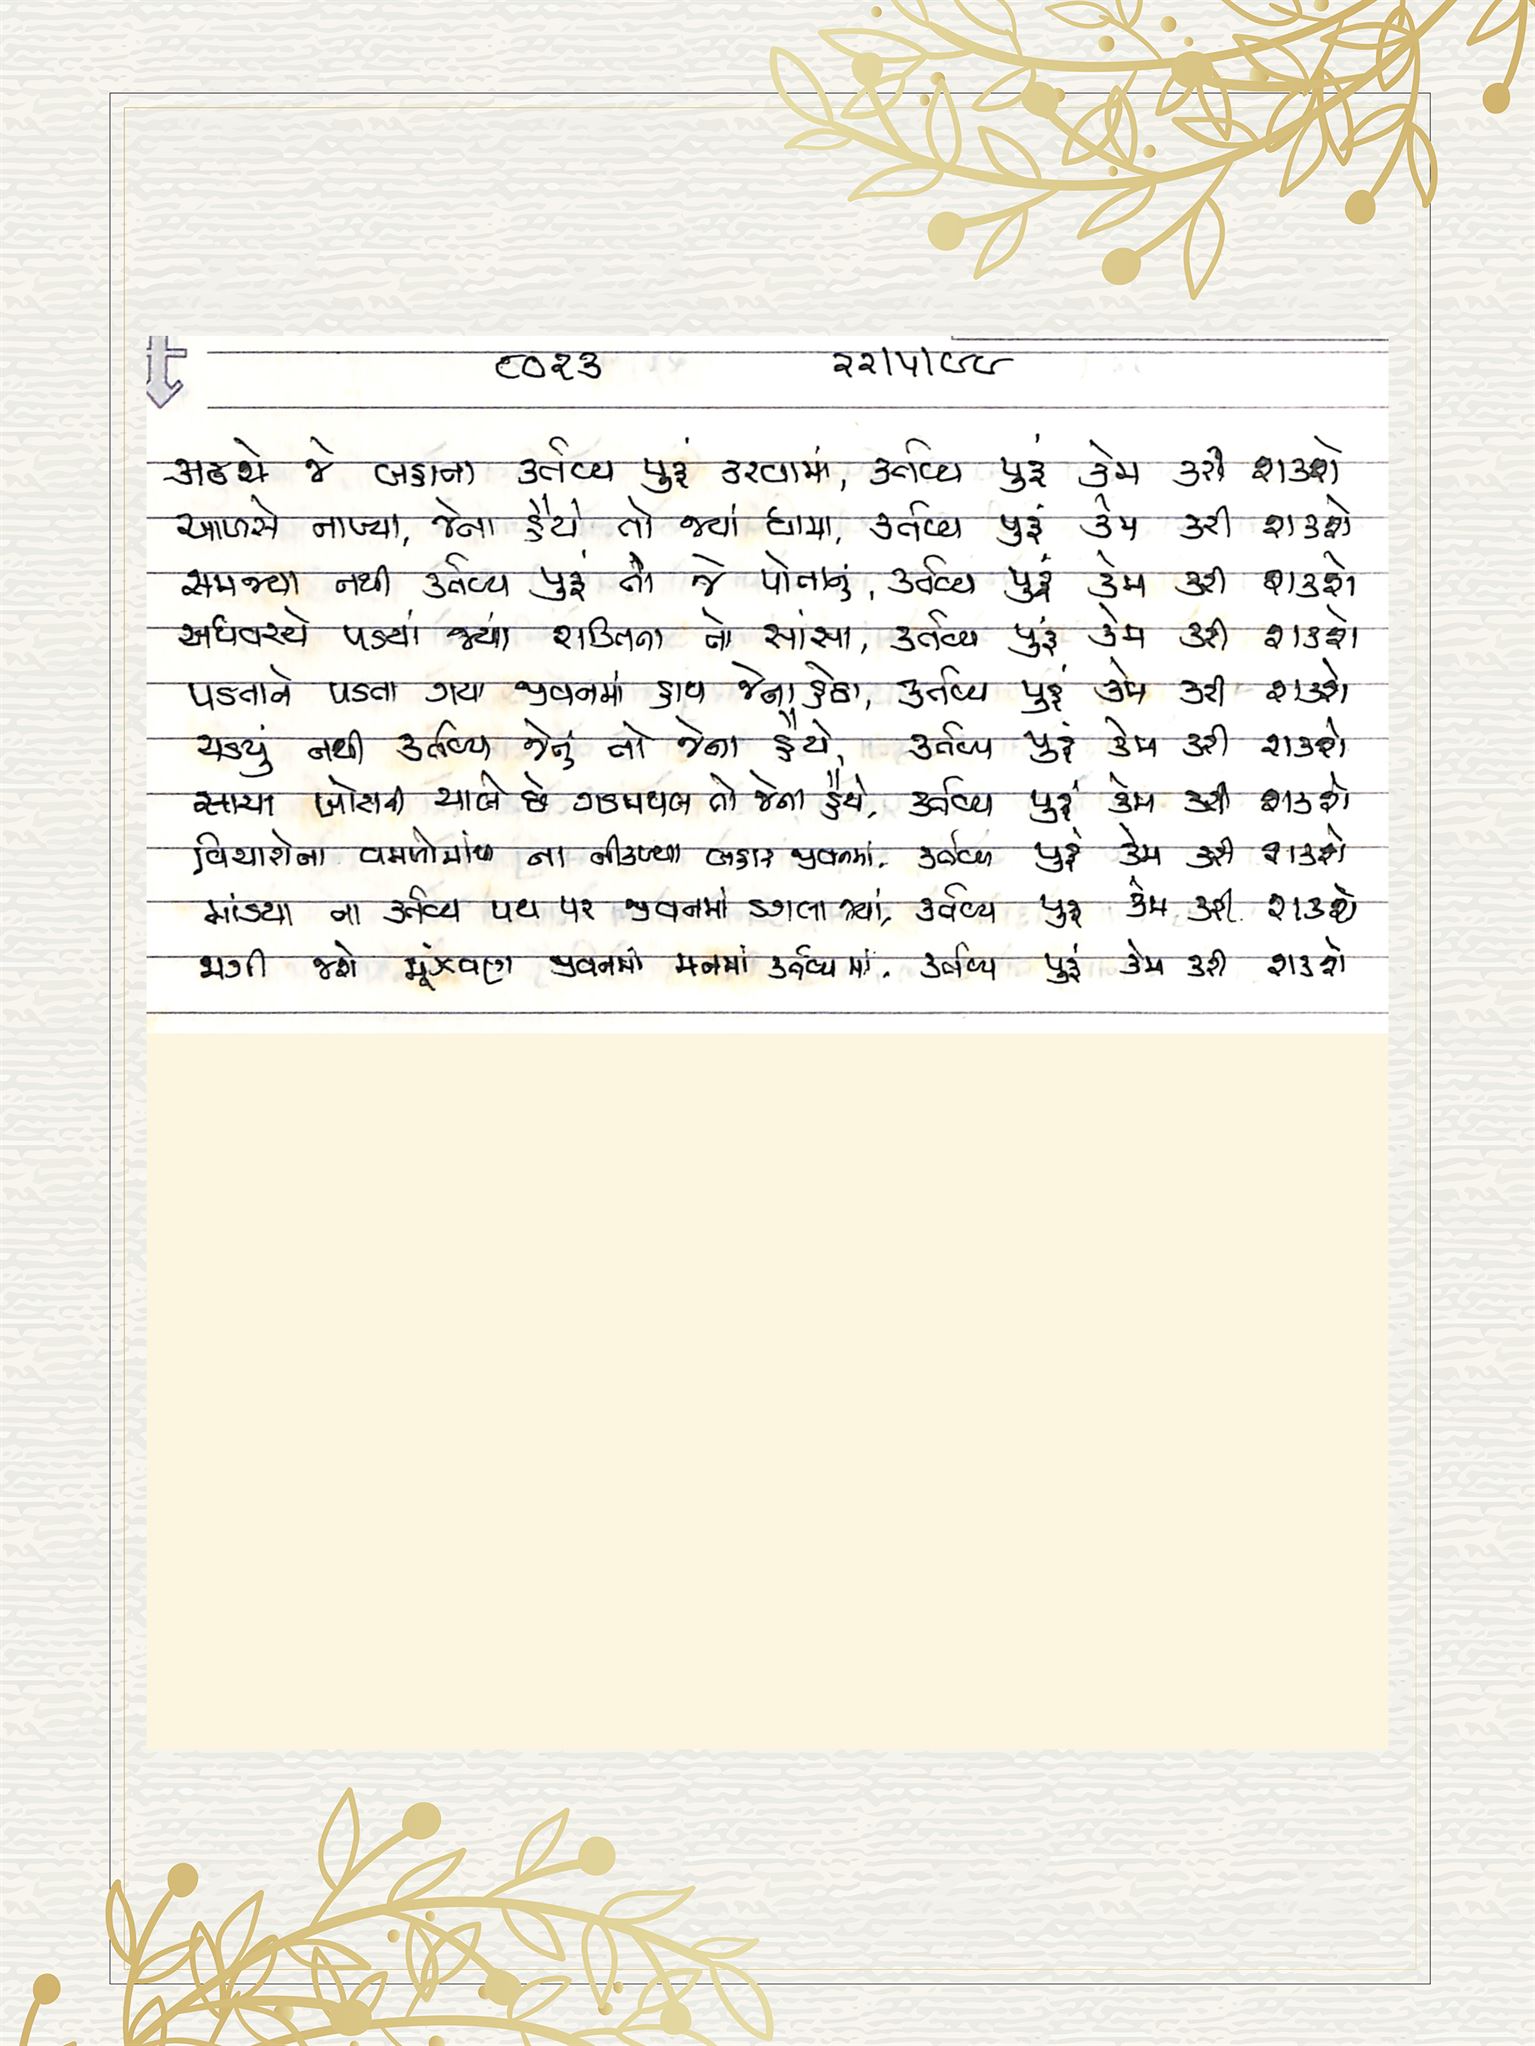 ૮૦૨૩ ૨૨/૫/૯૯
અટકશે જે બહાના કર્તવ્ય પુરૂં કરવામાં, કર્તવ્ય પુરૂં કેમ કરી શકશે
આળસે નાખ્યા, જેના હૈયે તો જ્યાં ધામા, કર્તવ્ય પુરૂં કેમ કરી શકશે
સમજ્યા નથી કર્તવ્ય પુરૂં તો જે પોતાનું, કર્તવ્ય પુરૂં કેમ કરી શકશે
અધવચ્ચે પડયાં જ્યાં શક્તિના તો સાંસા, કર્તવ્ય પુરૂં કેમ કરી શકશે
પડતાને પડતા ગયા જીવનમાં હાથ જેના હેઠા, કર્તવ્ય પુરૂં કેમ કરી શકશે
ચડયું નથી કર્તવ્ય જેનું તો જેના હૈયે, કર્તવ્ય પુરૂં કેમ કરી શકશે
સાચા ખોટાની ચાલે છે ગડમથલ તો જેના હૈયે, કર્તવ્ય પુરૂં કેમ કરી શકશે
વિચારોના વમળોમાંથી ના નીકળ્યા બહાર જીવનમાં, કર્તવ્ય પુરૂં કેમ કરી શકશે
માંડયા ના કર્તવ્ય પથ પર જીવનમાં ડગલા જ્યાં, કર્તવ્ય પુરૂં કેમ કરી શકશે
જાગી જશે મૂંઝવણ જીવનમાં મનમાં કર્તવ્યમાં, કર્તવ્ય પુરૂં કેમ કરી શકશે